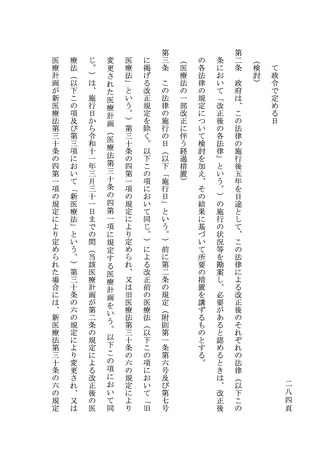 二八四頁
て政令で定める日
（検討）
第二条　政府は、この法律の施行後五年を目途として、この法律による改正後のそれぞれの法律（以下この
条において「改正後の各法律」という。）の施行の状況等を勘案し、必要があると認めるときは、改正後
の各法律の規定について検討を加え、その結果に基づいて所要の措置を講ずるものとする。
（医療法の一部改正に伴う経過措置）
第三条　この法律の施行の日（以下「施行日」という。）前に第二条の規定（附則第一条第六号及び第七号
に掲げる改正規定を除く。以下この項において同じ。）による改正前の医療法（以下この項において「旧
医療法」という。）第三十条の四第一項の規定により定められ、又は旧医療法第三十条の六の規定により
変更された医療計画（医療法第三十条の四第一項に規定する医療計画をいう。以下この項において同
じ。）は、施行日から令和十一年三月三十一日までの間（当該医療計画が第二条の規定による改正後の医
療法（以下この項及び第三項において「新医療法」という。）第三十条の六の規定により変更され、又は
医療計画が新医療法第三十条の四第一項の規定により定められた場合には、新医療法第三十条の六の規定